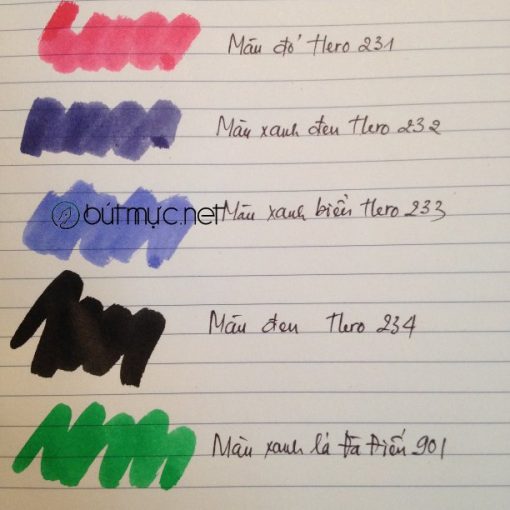 Màu đỏ Hero 231
Màu xanh đen Hero 232
bútmực.net
Màu xanh biển Hero 233
Màu đen Hero 234
Màu xanh lá Đa Điến 901